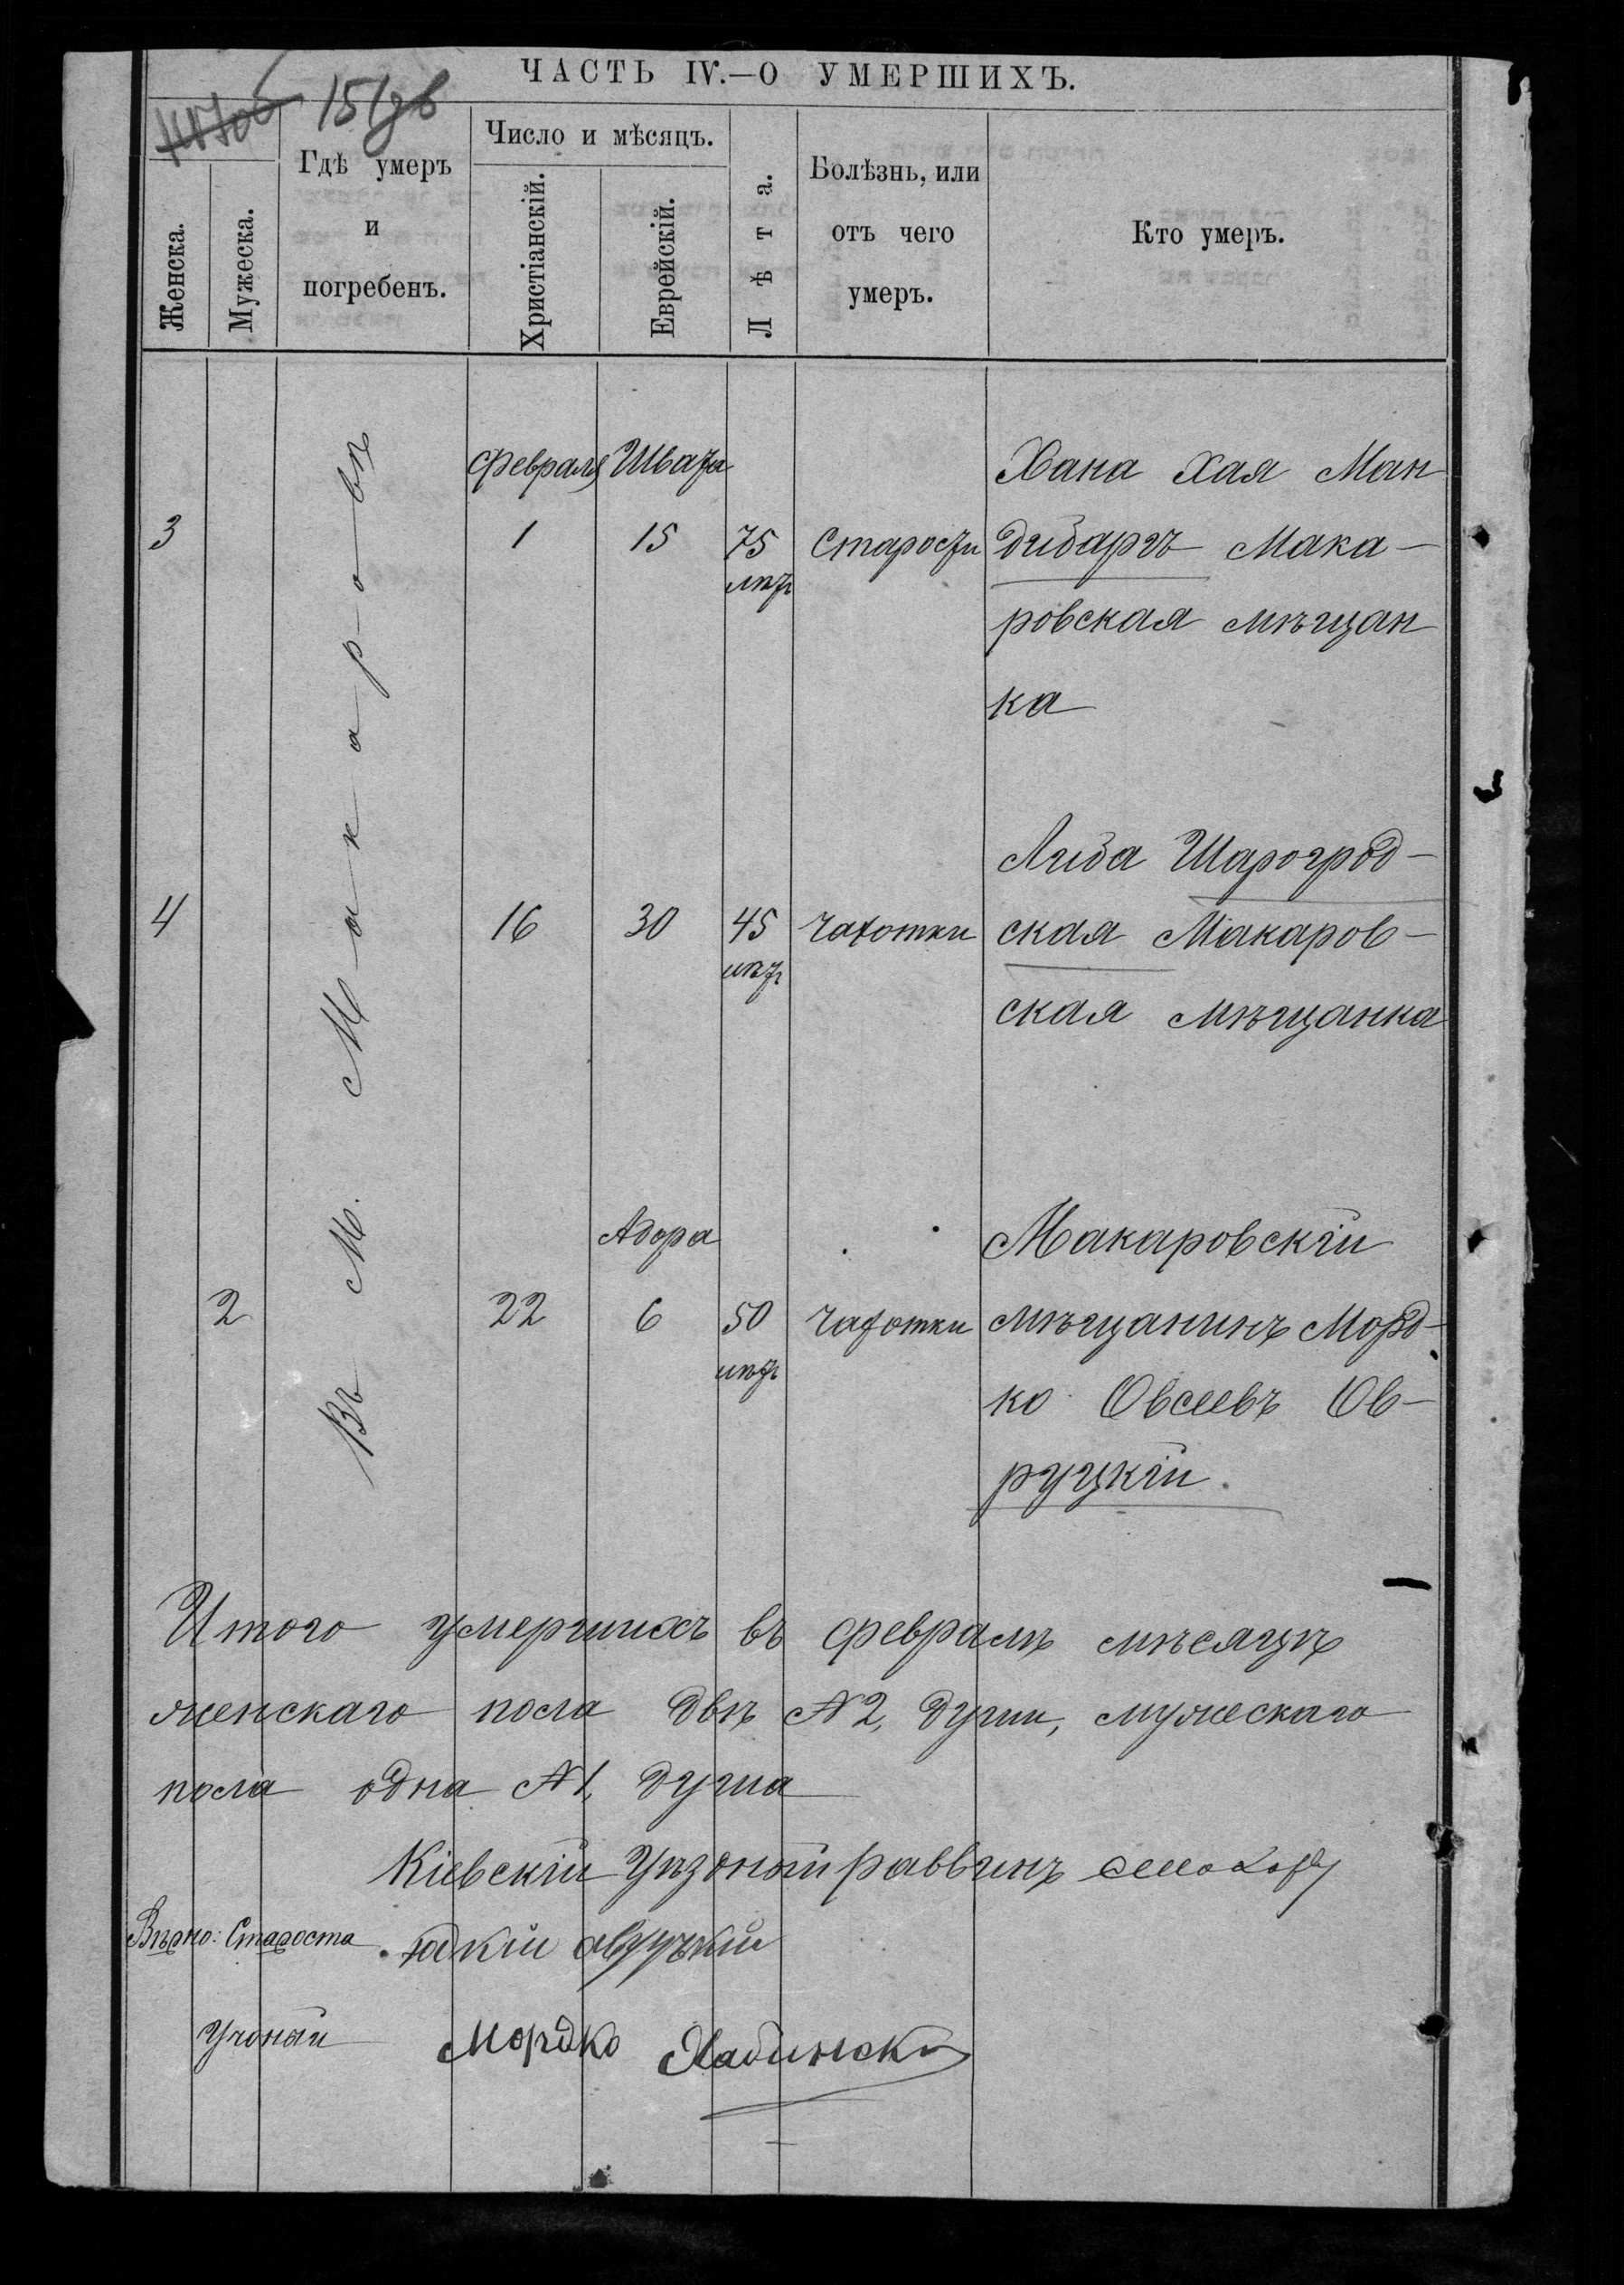 ЧАСТЬ IV.—О УМЕРШИХЪ.
151
Женска.
Мужеска.
Гдѣ умеръ
и
погребенъ.
Число и мѣсяцъ.
Христіанскій.
Еврейскій.
Лѣта.
Болѣзнь, или
отъ чего
умеръ.
Кто умеръ.
Въ М. Макаровѣ
Февраля Швата
3 1 15 75 лѣтъ Старости
Хана Хая Ман
дибаргъ Мака-
ровская мѣщан
ка
4 16 30 45 лѣтъ Чахотки
Либа Шарогрод-
ская Макаров-
ская мѣщанка
Адора
2 22 6 50 лѣтъ Чахотки
Макаровскій
мѣщанинъ Морд-
ко Овсеевъ Ов-
руцкій.
Итого умершихъ въ Февралѣ мѣсяцѣ
женскаго пола двѣ №2, души, мужескаго
пола одна №1, душа
Кіевскій Уѣздный раввинъ
Вѣрно: Староста
Учоный Мордко